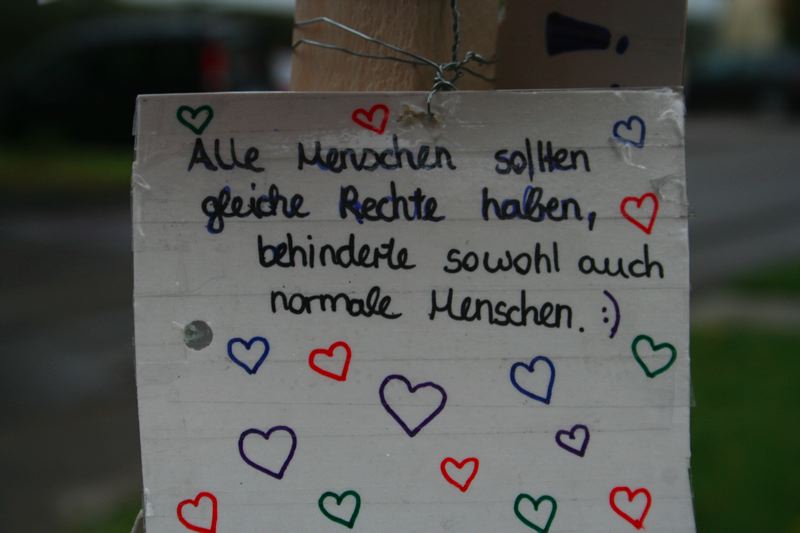 Alle Menschen sollten
gleiche Rechte haben,
behinderte sowohl auch
normale Menschen. :)